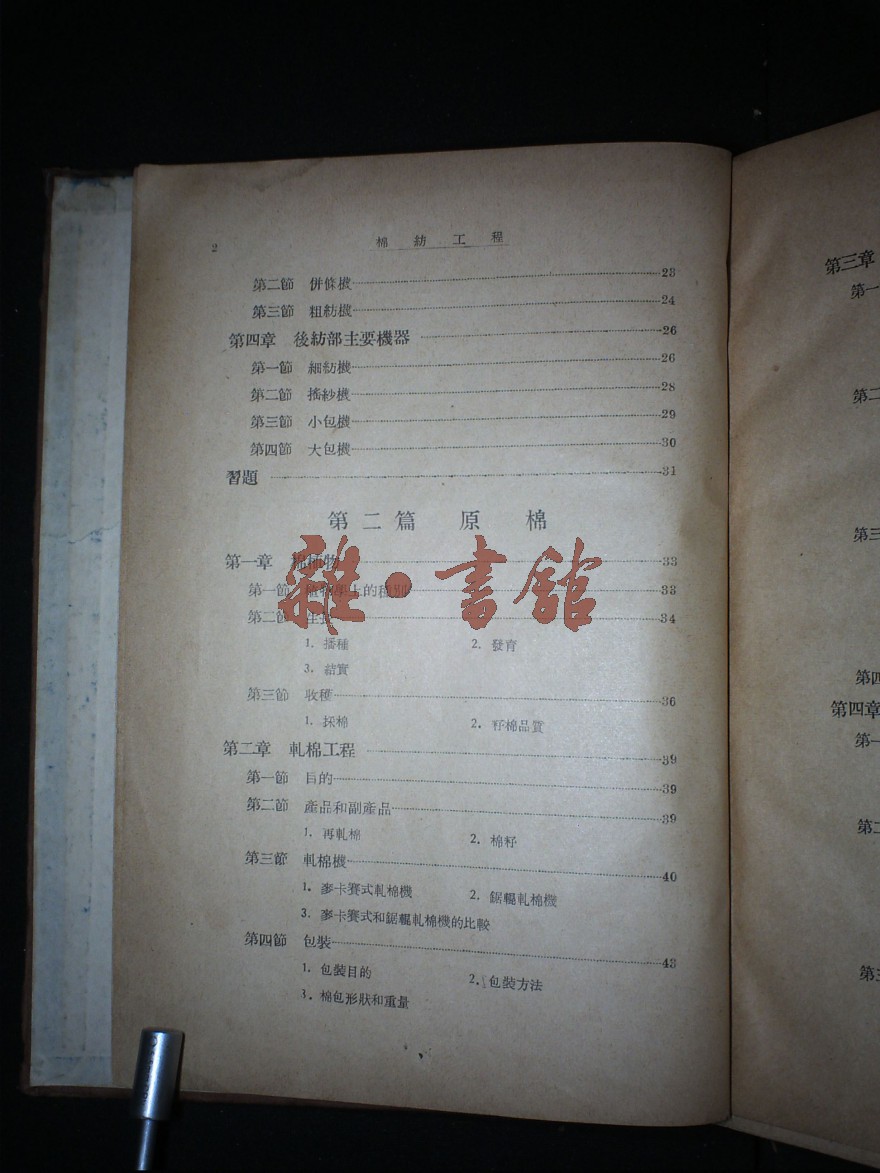 2
棉紡工程
第二節 併條機 23
第三節 粗紡機 24
第四章 後紡部主要機器 26
第一節 細紡機 26
第二節 搖紗機 28
第三節 小包機 29
第四節 大包機 30
習題 31
第二篇 原棉
第一章 棉植物 33
第一節 植物學上的種別 33
第二節 生長 34
1. 播種 2. 發育
3. 結實
第三節 收穫 36
1. 採棉 2. 籽棉品質
第二章 軋棉工程 39
第一節 目的 39
第二節 產品和副產品 39
1. 再軋棉 2. 棉籽
第三節 軋棉機 40
1. 麥卡賽式軋棉機 2. 鋸輥軋棉機
3. 麥卡賽式和鋸輥軋棉機的比較
第四節 包裝 43
1. 包裝目的 2. 包裝方法
3. 棉包形狀和重量
雜·書館
第三章
第一
第二
第三
第四
第四章
第一
第二
第三